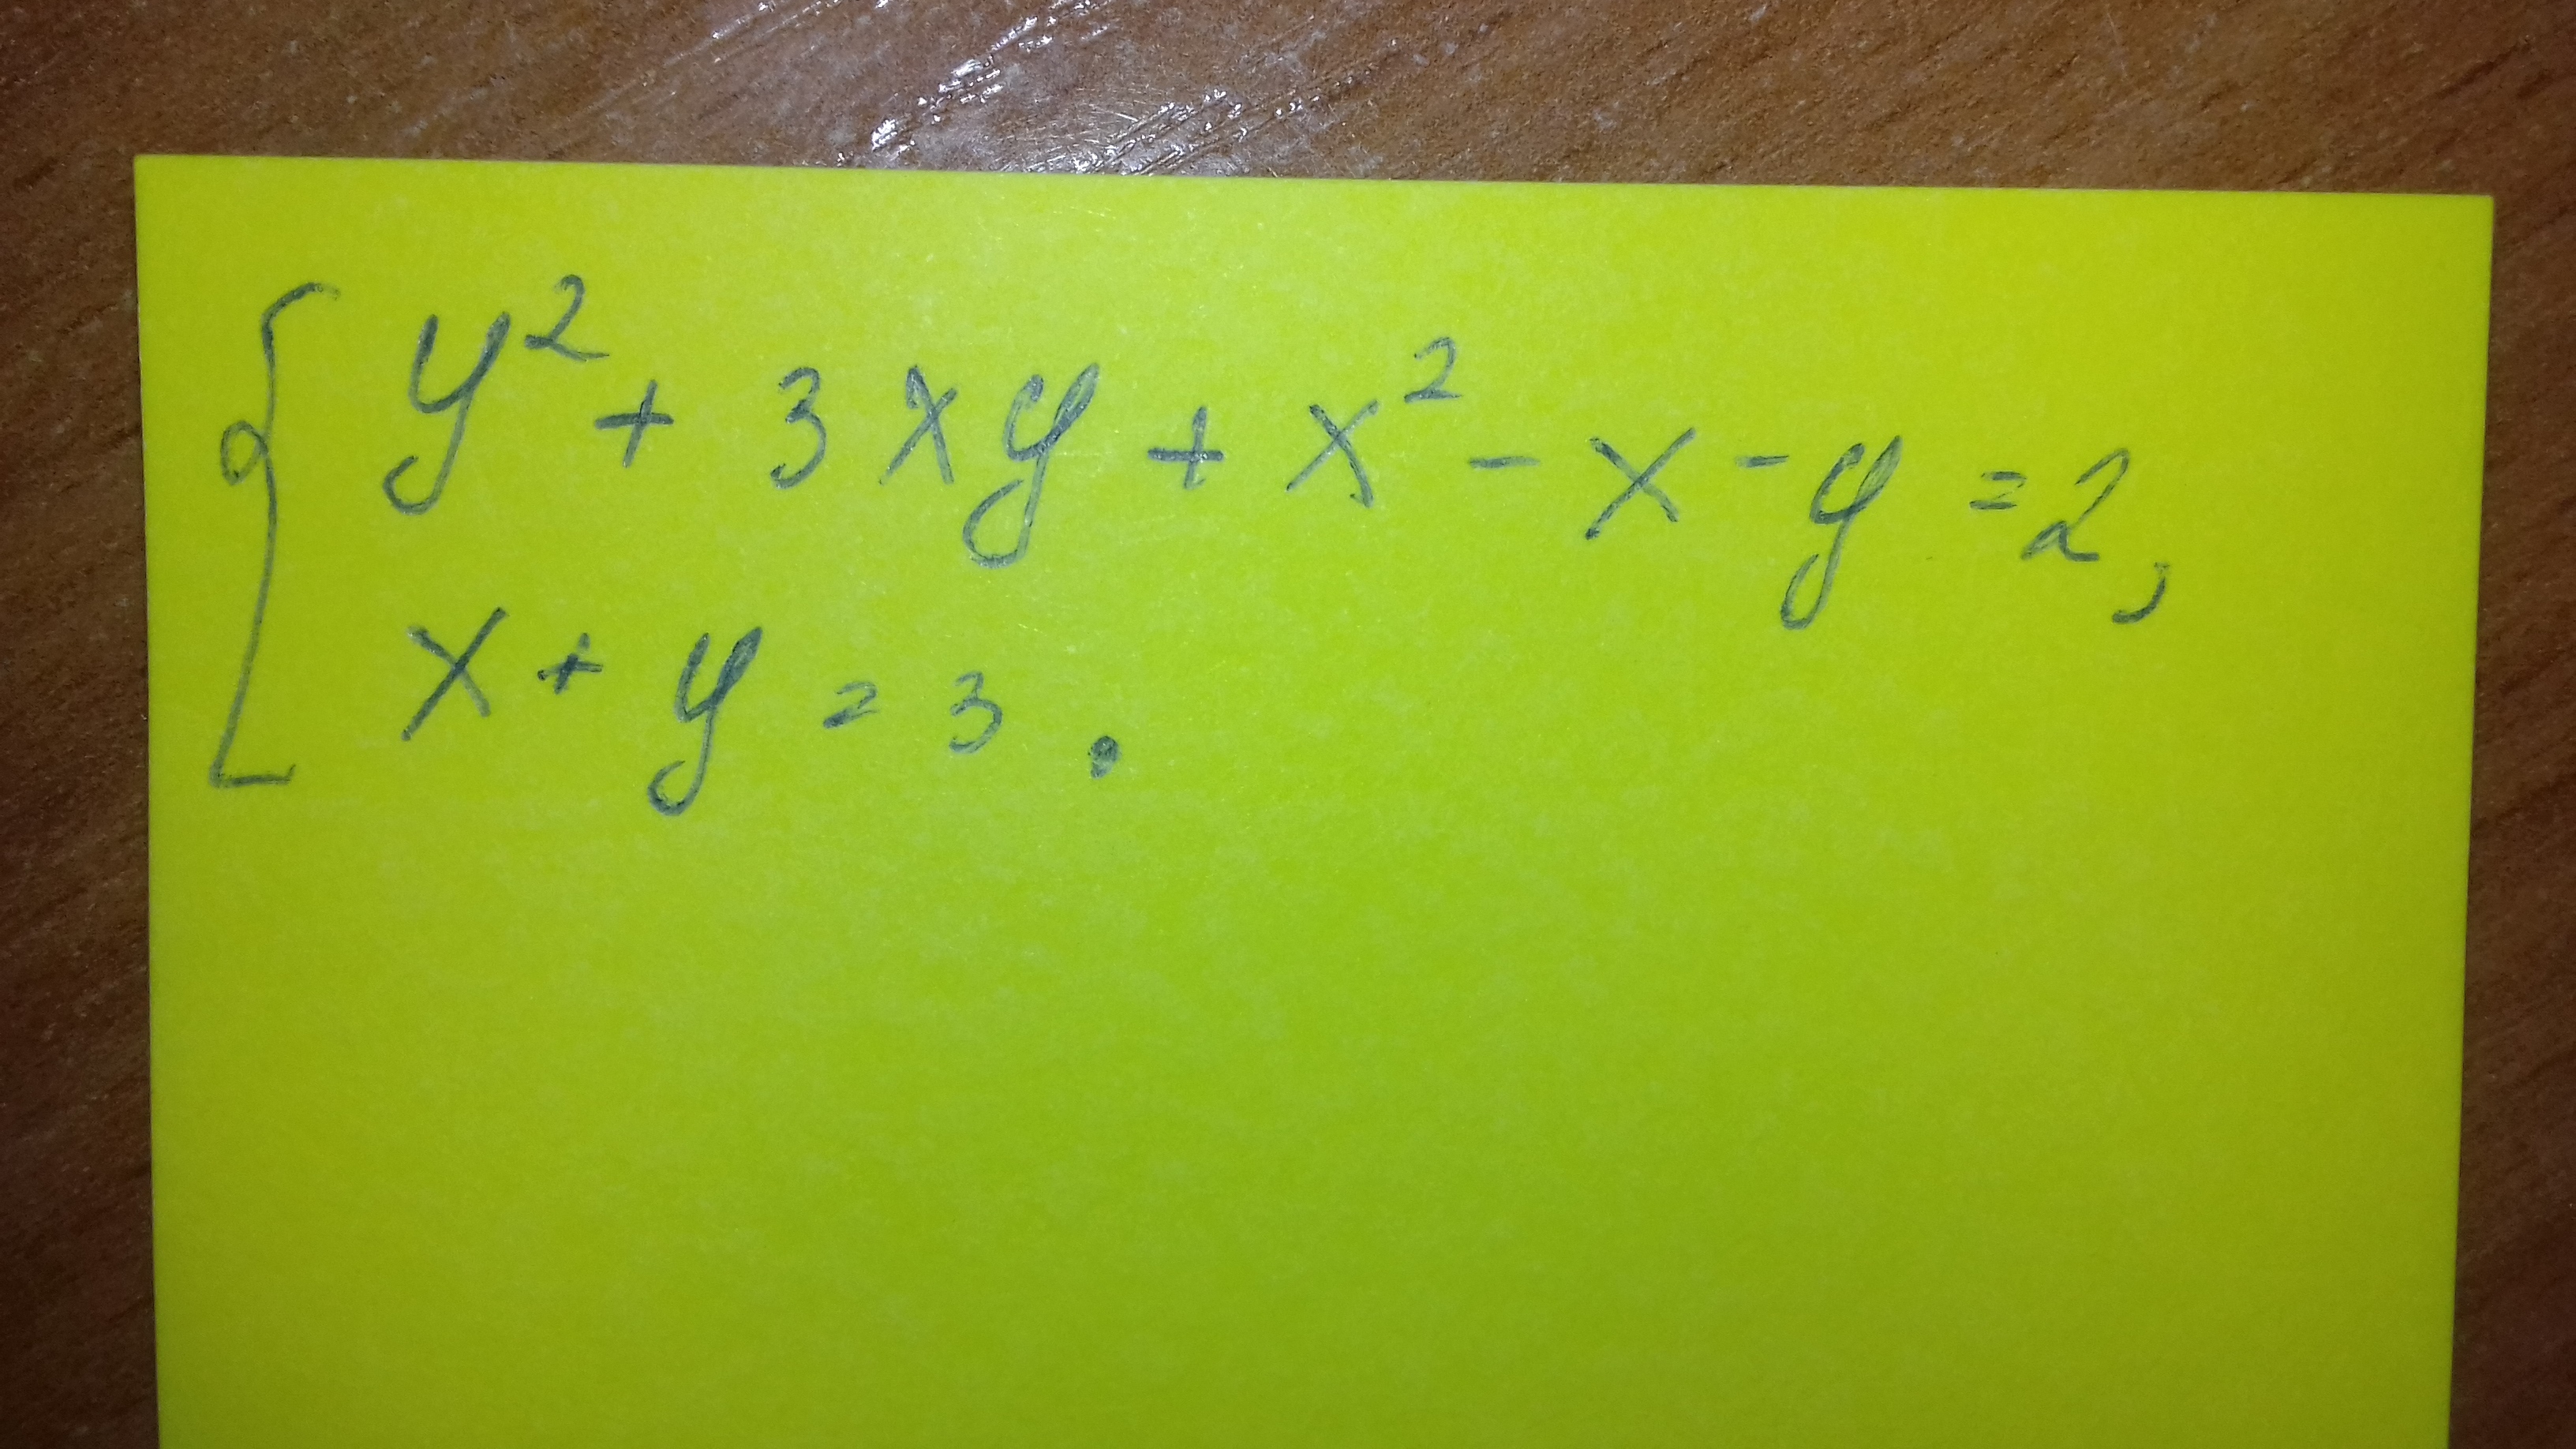 y² + 3xy + x² - x - y = 2,
x + y = 3.